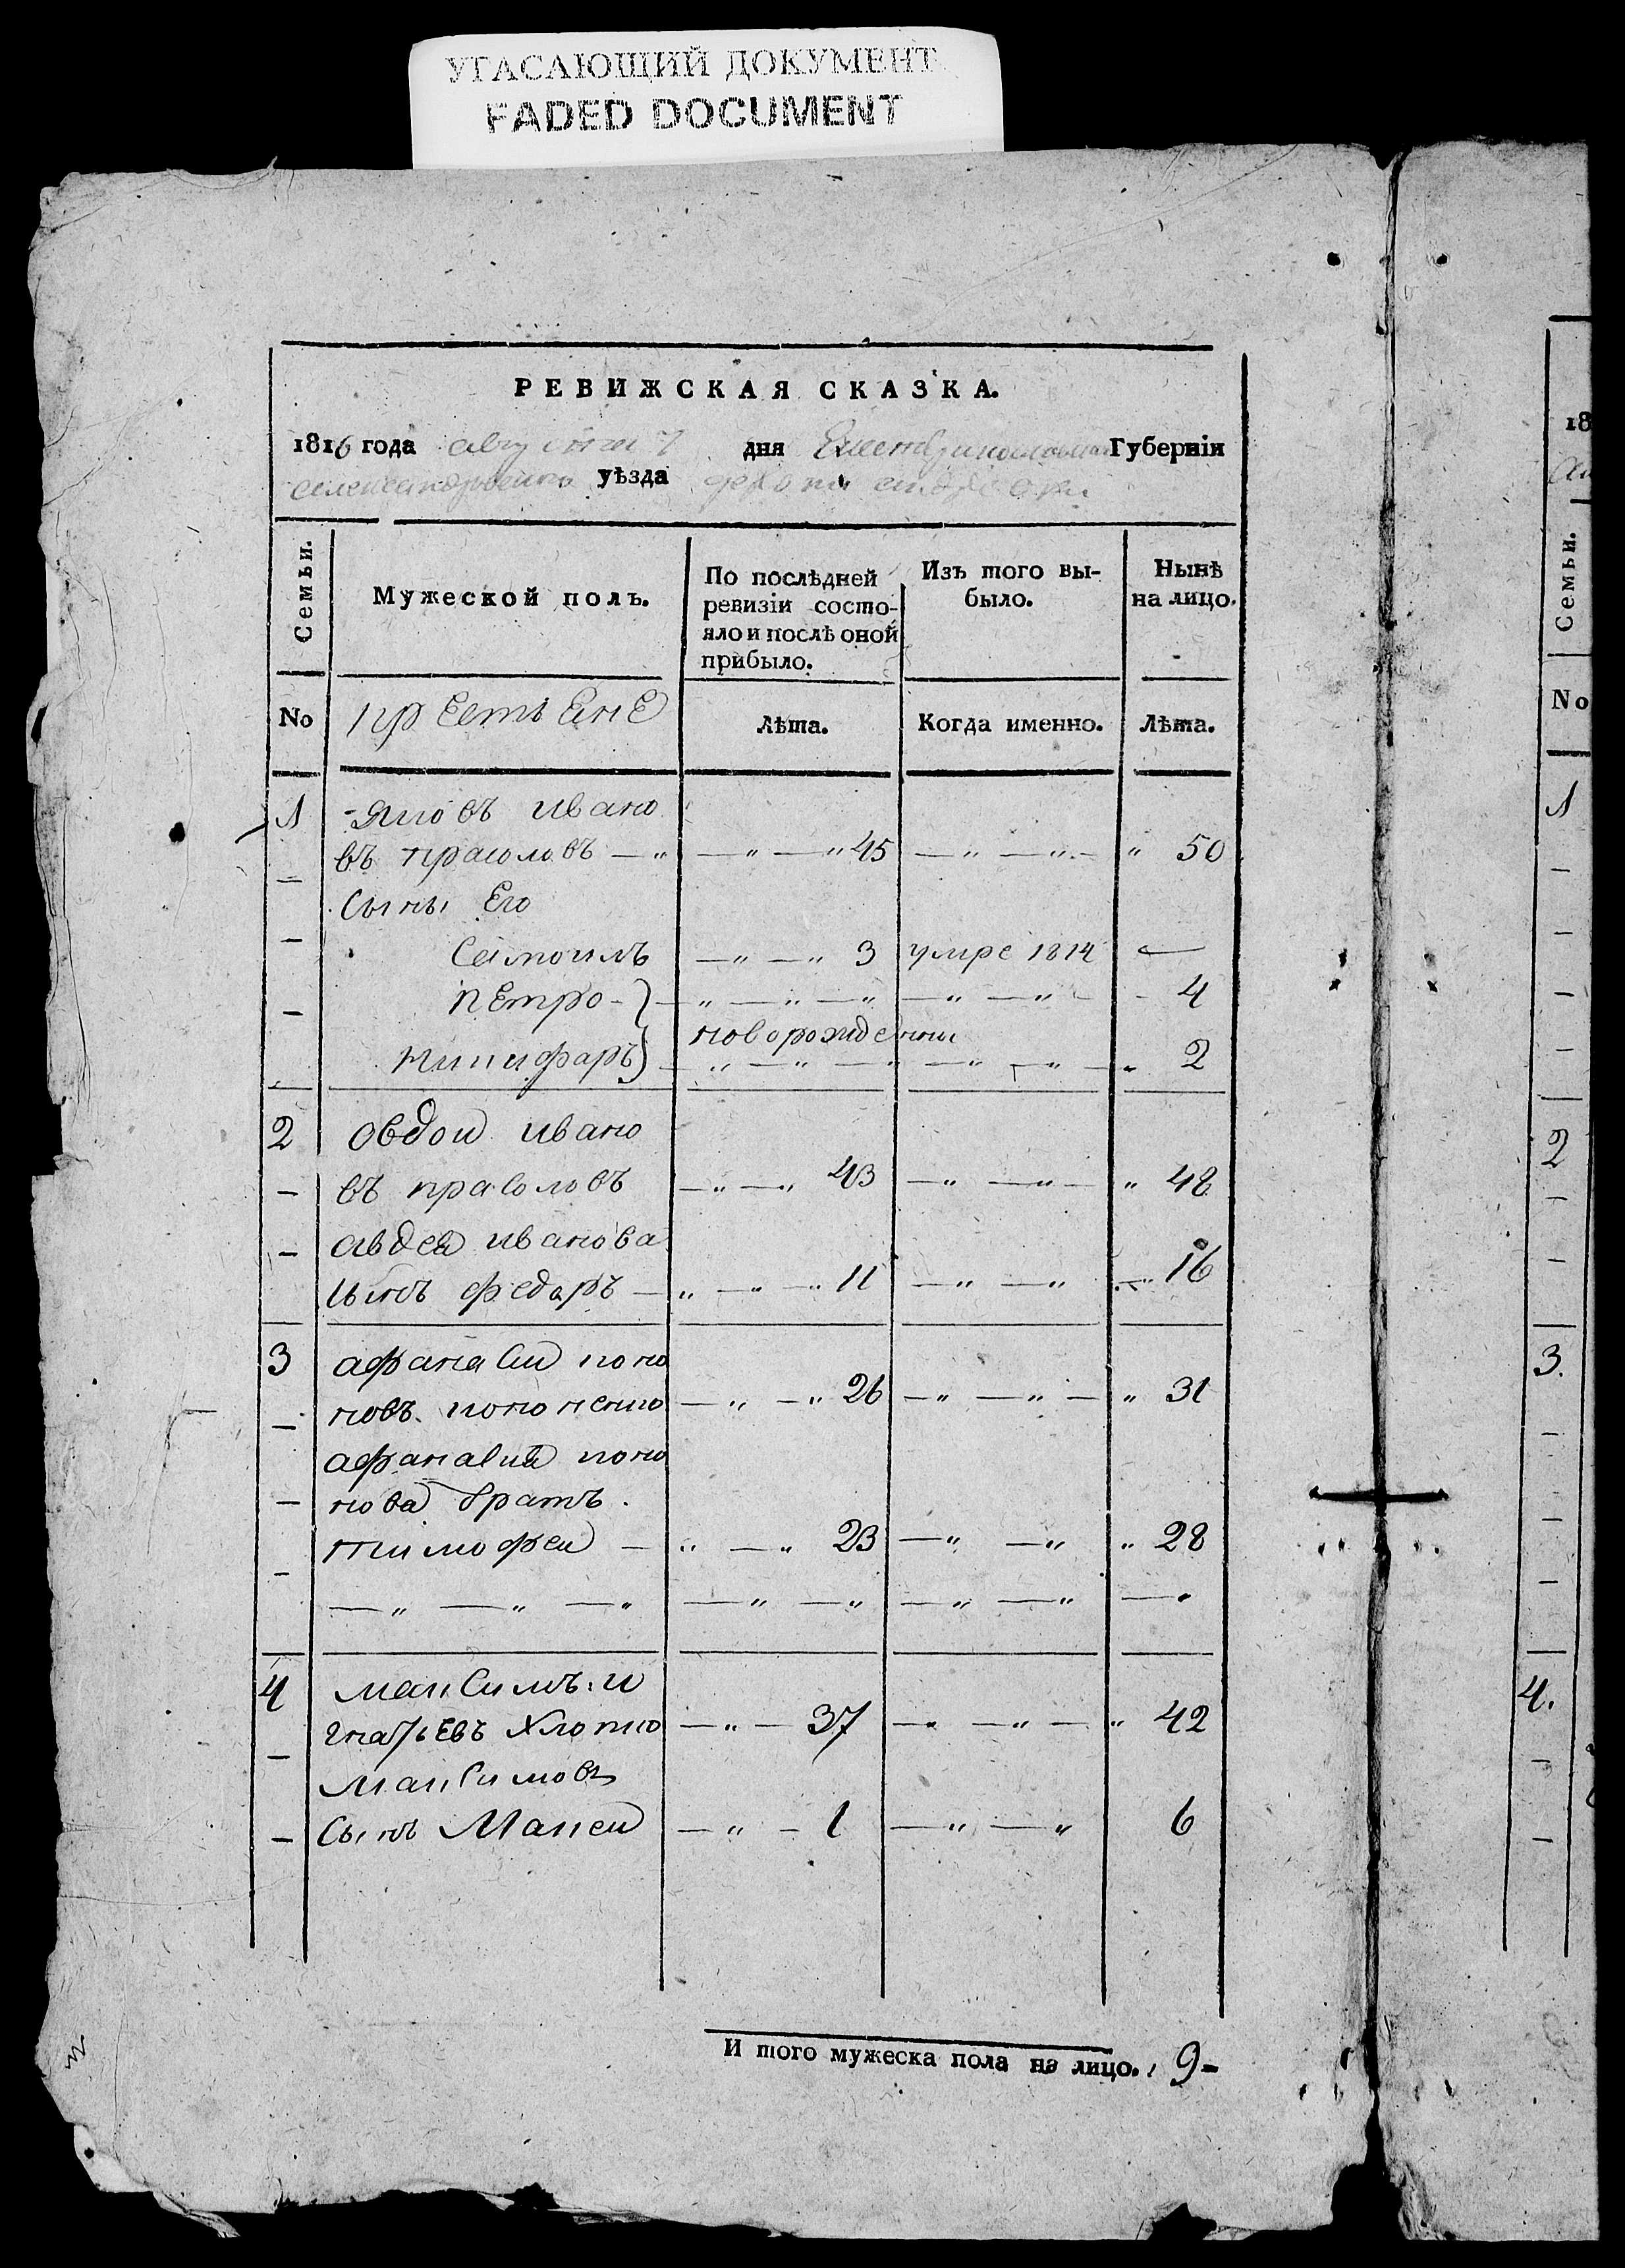 УГАСАЮЩИЙ ДОКУМЕНТ
FADED DOCUMENT
РЕВИЖСКАЯ СКАЗКА.
1816 года августа 7 дня Екатеринославской Губерніи
александровского уѣзда
Семьи.
Мужеской полъ.
По послѣдней
ревизіи состо-
яло и послѣ оной
прибыло.
Изъ того вы-
было.
Нынѣ
на лицо.
No
крестьяне
Лѣта.
Когда именно.
Лѣта.
1 Яковъ ивано
въ прасоловъ — „ — „ — „ 45 — „ — „ — „ 50
Сыны Его
— „ — „ 3 умре 1814 —
петро — „ — „ — „ — „ — „ — 4
новорожденни
никифаръ — „ — „ — „ — „ — „ — „ 2
2 овдои ивано
въ прасоловъ — „ — „ 43 — „ — „ — „ 48
авдея иванова
сынъ федаръ — „ — „ — „ 11 — „ — „ — „ 16
3 афанасии коно
новъ кононенко — „ — „ 26 — „ — „ — „ 31
афанасия коно
нова братъ
тимофеи — „ — „ 23 — „ — „ „ 28
— „ — „ — „ — „ — „ — „ — „ — „
4 максимъ и
гнатьевъ — „ — 37 — „ — „ — „ 42
Максимовъ
Сынъ Макеи — „ — 1 — „ — „ 6
И того мужеска пола на лицо. 9 -
18
Семьи.
No
1
2
3.
4.